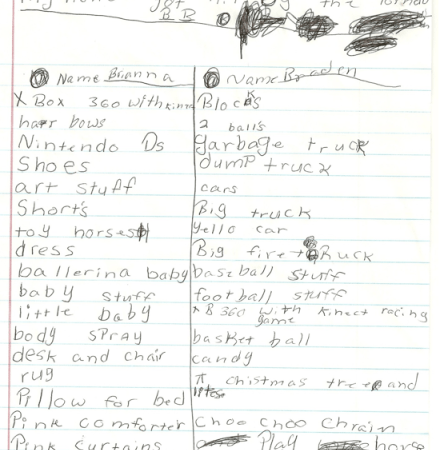 got the
B B
Name Brianna
X Box 360 with kinect
hair bows
Nintendo Ds
Shoes
art stuff
Short's
toy horses
dress
ballerina baby
baby stuff
little baby
body spray
desk and chair
rug
Pillow for bed
Pink comforter
Pink curtains
Name Braden
Blocks
2 balls
garbage truck
dump truck
cars
Big truck
yello car
Big fire truck
baseball stuff
football stuff
x B 360 with kinect racing
game
basket ball
candy
chistmas tree and
Choo choo chrain
Play horse